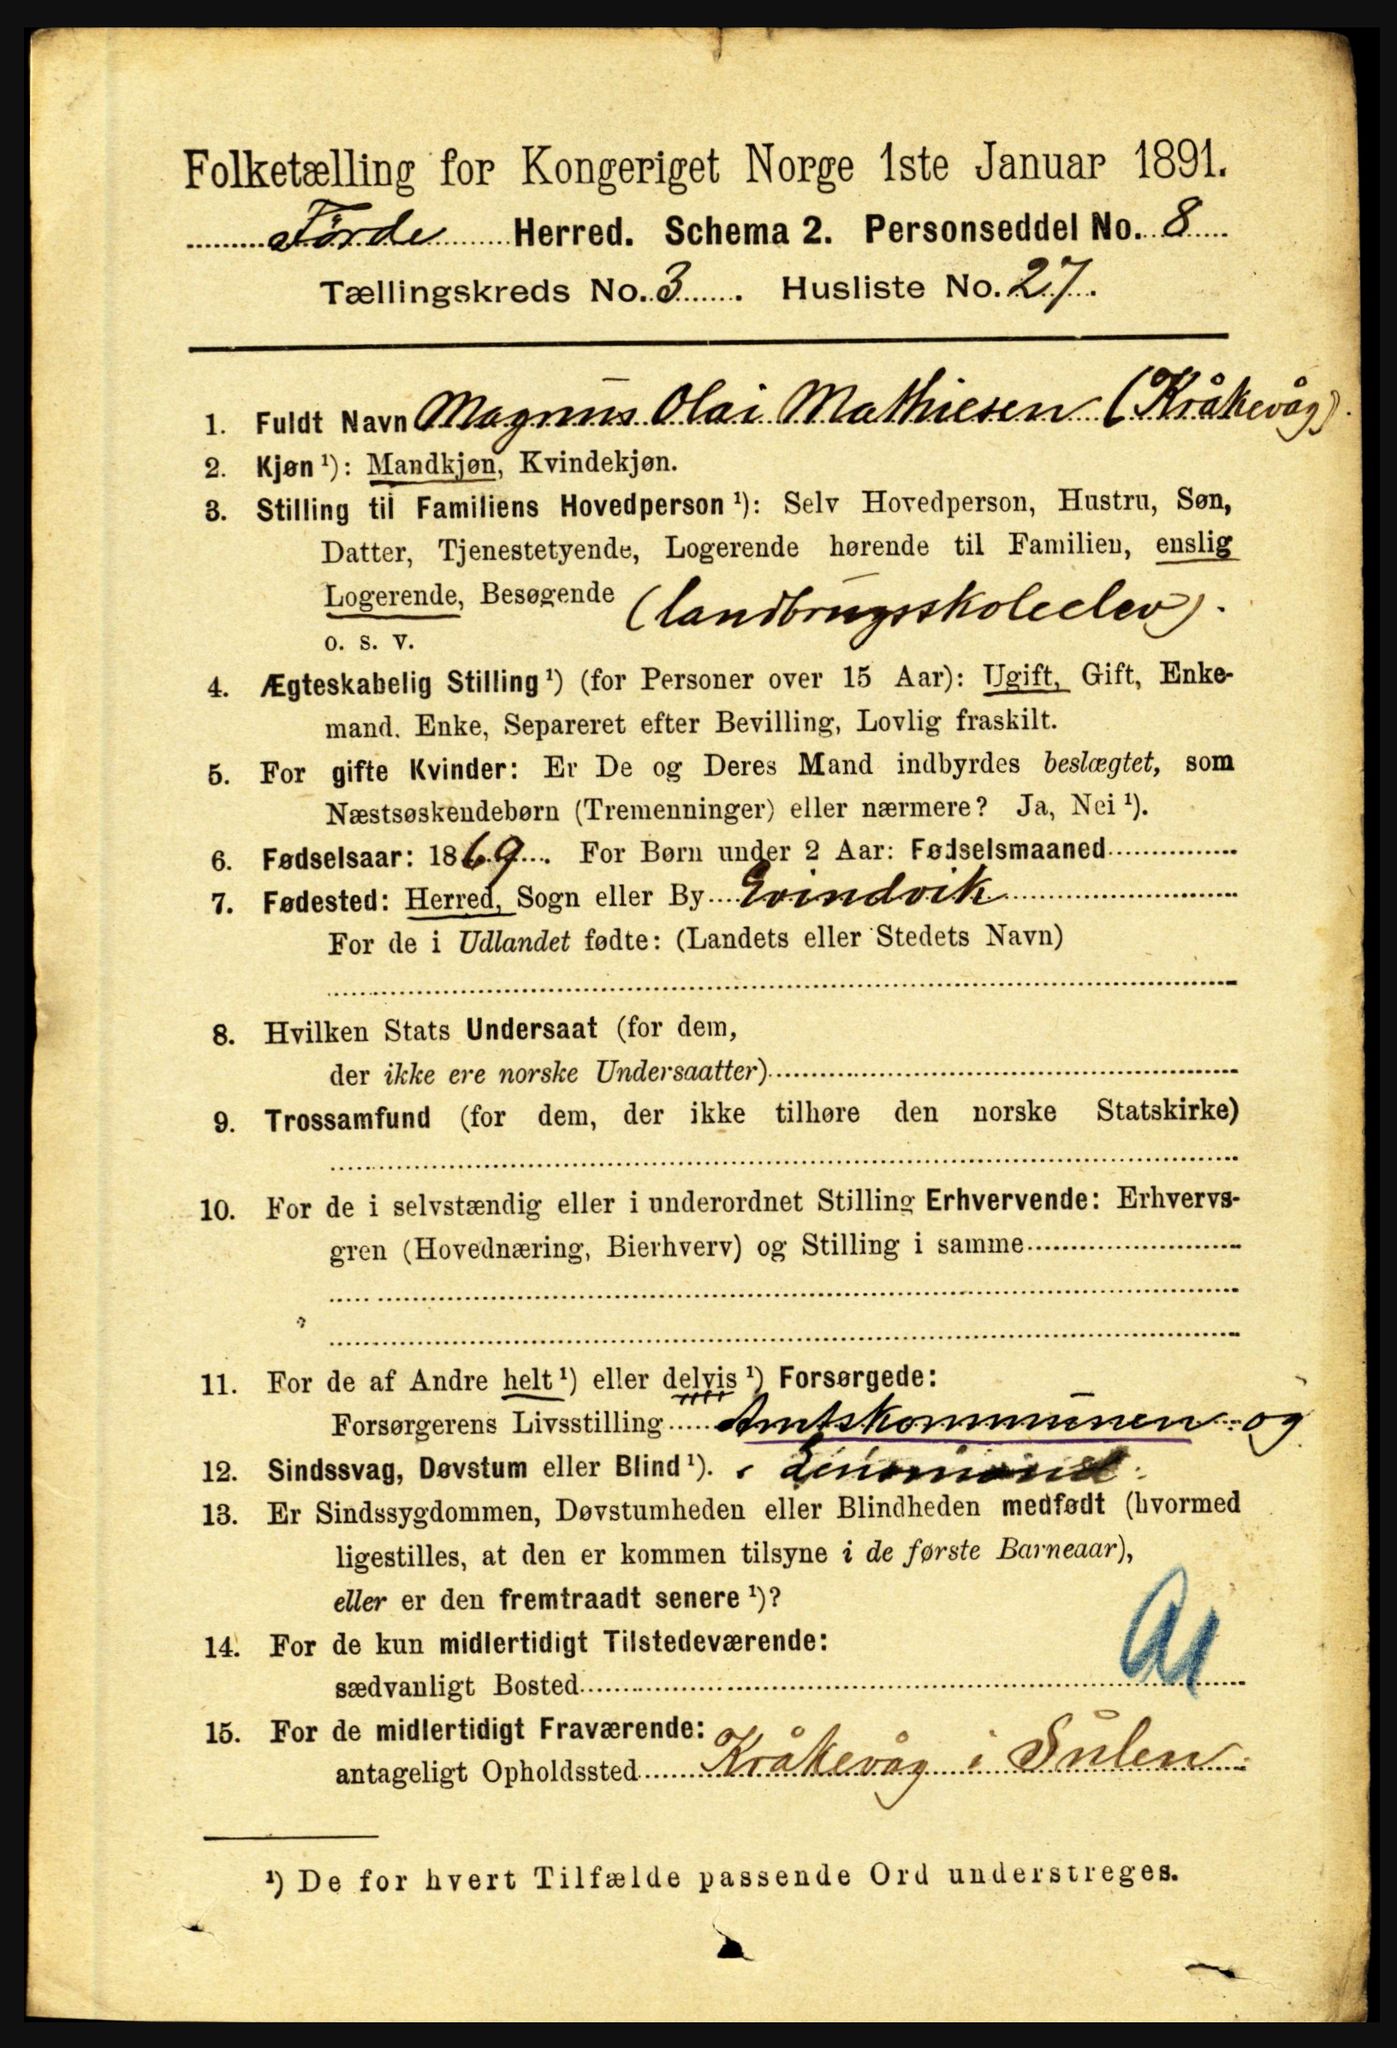 Folketælling for Kongeriget Norge 1ste Januar 1891.
Førde Herred. Schema 2. Personseddel No. 8
Tællingskreds No. 3. Husliste No. 27.
1. Fuldt Navn Magnus Olai Mathiesen (Kråkevåg).
2. Kjøn ¹): Mandkjøn, Kvindekjøn.
3. Stilling til Familiens Hovedperson ¹): Selv Hovedperson, Hustru, Søn,
Datter, Tjenestetyende, Logerende hørende til Familien, enslig
Logerende, Besøgende (landbrugsskoleelev).
o. s. v.
4. Ægteskabelig Stilling ¹) (for Personer over 15 Aar): Ugift, Gift, Enke-
mand. Enke, Separeret efter Bevilling, Lovlig fraskilt.
5. For gifte Kvinder: Er De og Deres Mand indbyrdes beslægtet, som
Næstsøskendebørn (Tremenninger) eller nærmere? Ja, Nei ¹).
6. Fødselsaar: 1869. For Børn under 2 Aar: Fødselsmaaned
7. Fødested: Herred, Sogn eller By Evindvik
For de i Udlandet fødte: (Landets eller Stedets Navn)
8. Hvilken Stats Undersaat (for dem,
der ikke ere norske Undersaatter)
9. Trossamfund (for dem, der ikke tilhøre den norske Statskirke)
10. For de i selvstændig eller i underordnet Stilling Erhvervende: Erhvervs-
gren (Hovednæring, Bierhverv) og Stilling i samme
11. For de af Andre helt ¹) eller delvis ¹) Forsørgede:
Forsørgerens Livsstilling Amtskommunen og
12. Sindssvag, Døvstum eller Blind ¹).
13. Er Sindssygdommen, Døvstumheden eller Blindheden medfødt (hvormed
ligestilles, at den er kommen tilsyne i de første Barneaar),
eller er den fremtraadt senere ¹)?
14. For de kun midlertidigt Tilstedeværende:
sædvanligt Bosted
15. For de midlertidigt Fraværende:
antageligt Opholdssted Kråkevåg i Sulen.
¹) De for hvert Tilfælde passende Ord understreges.